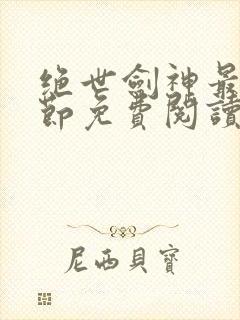 绝世劍神最
節免費閱讀
尼西貝寶